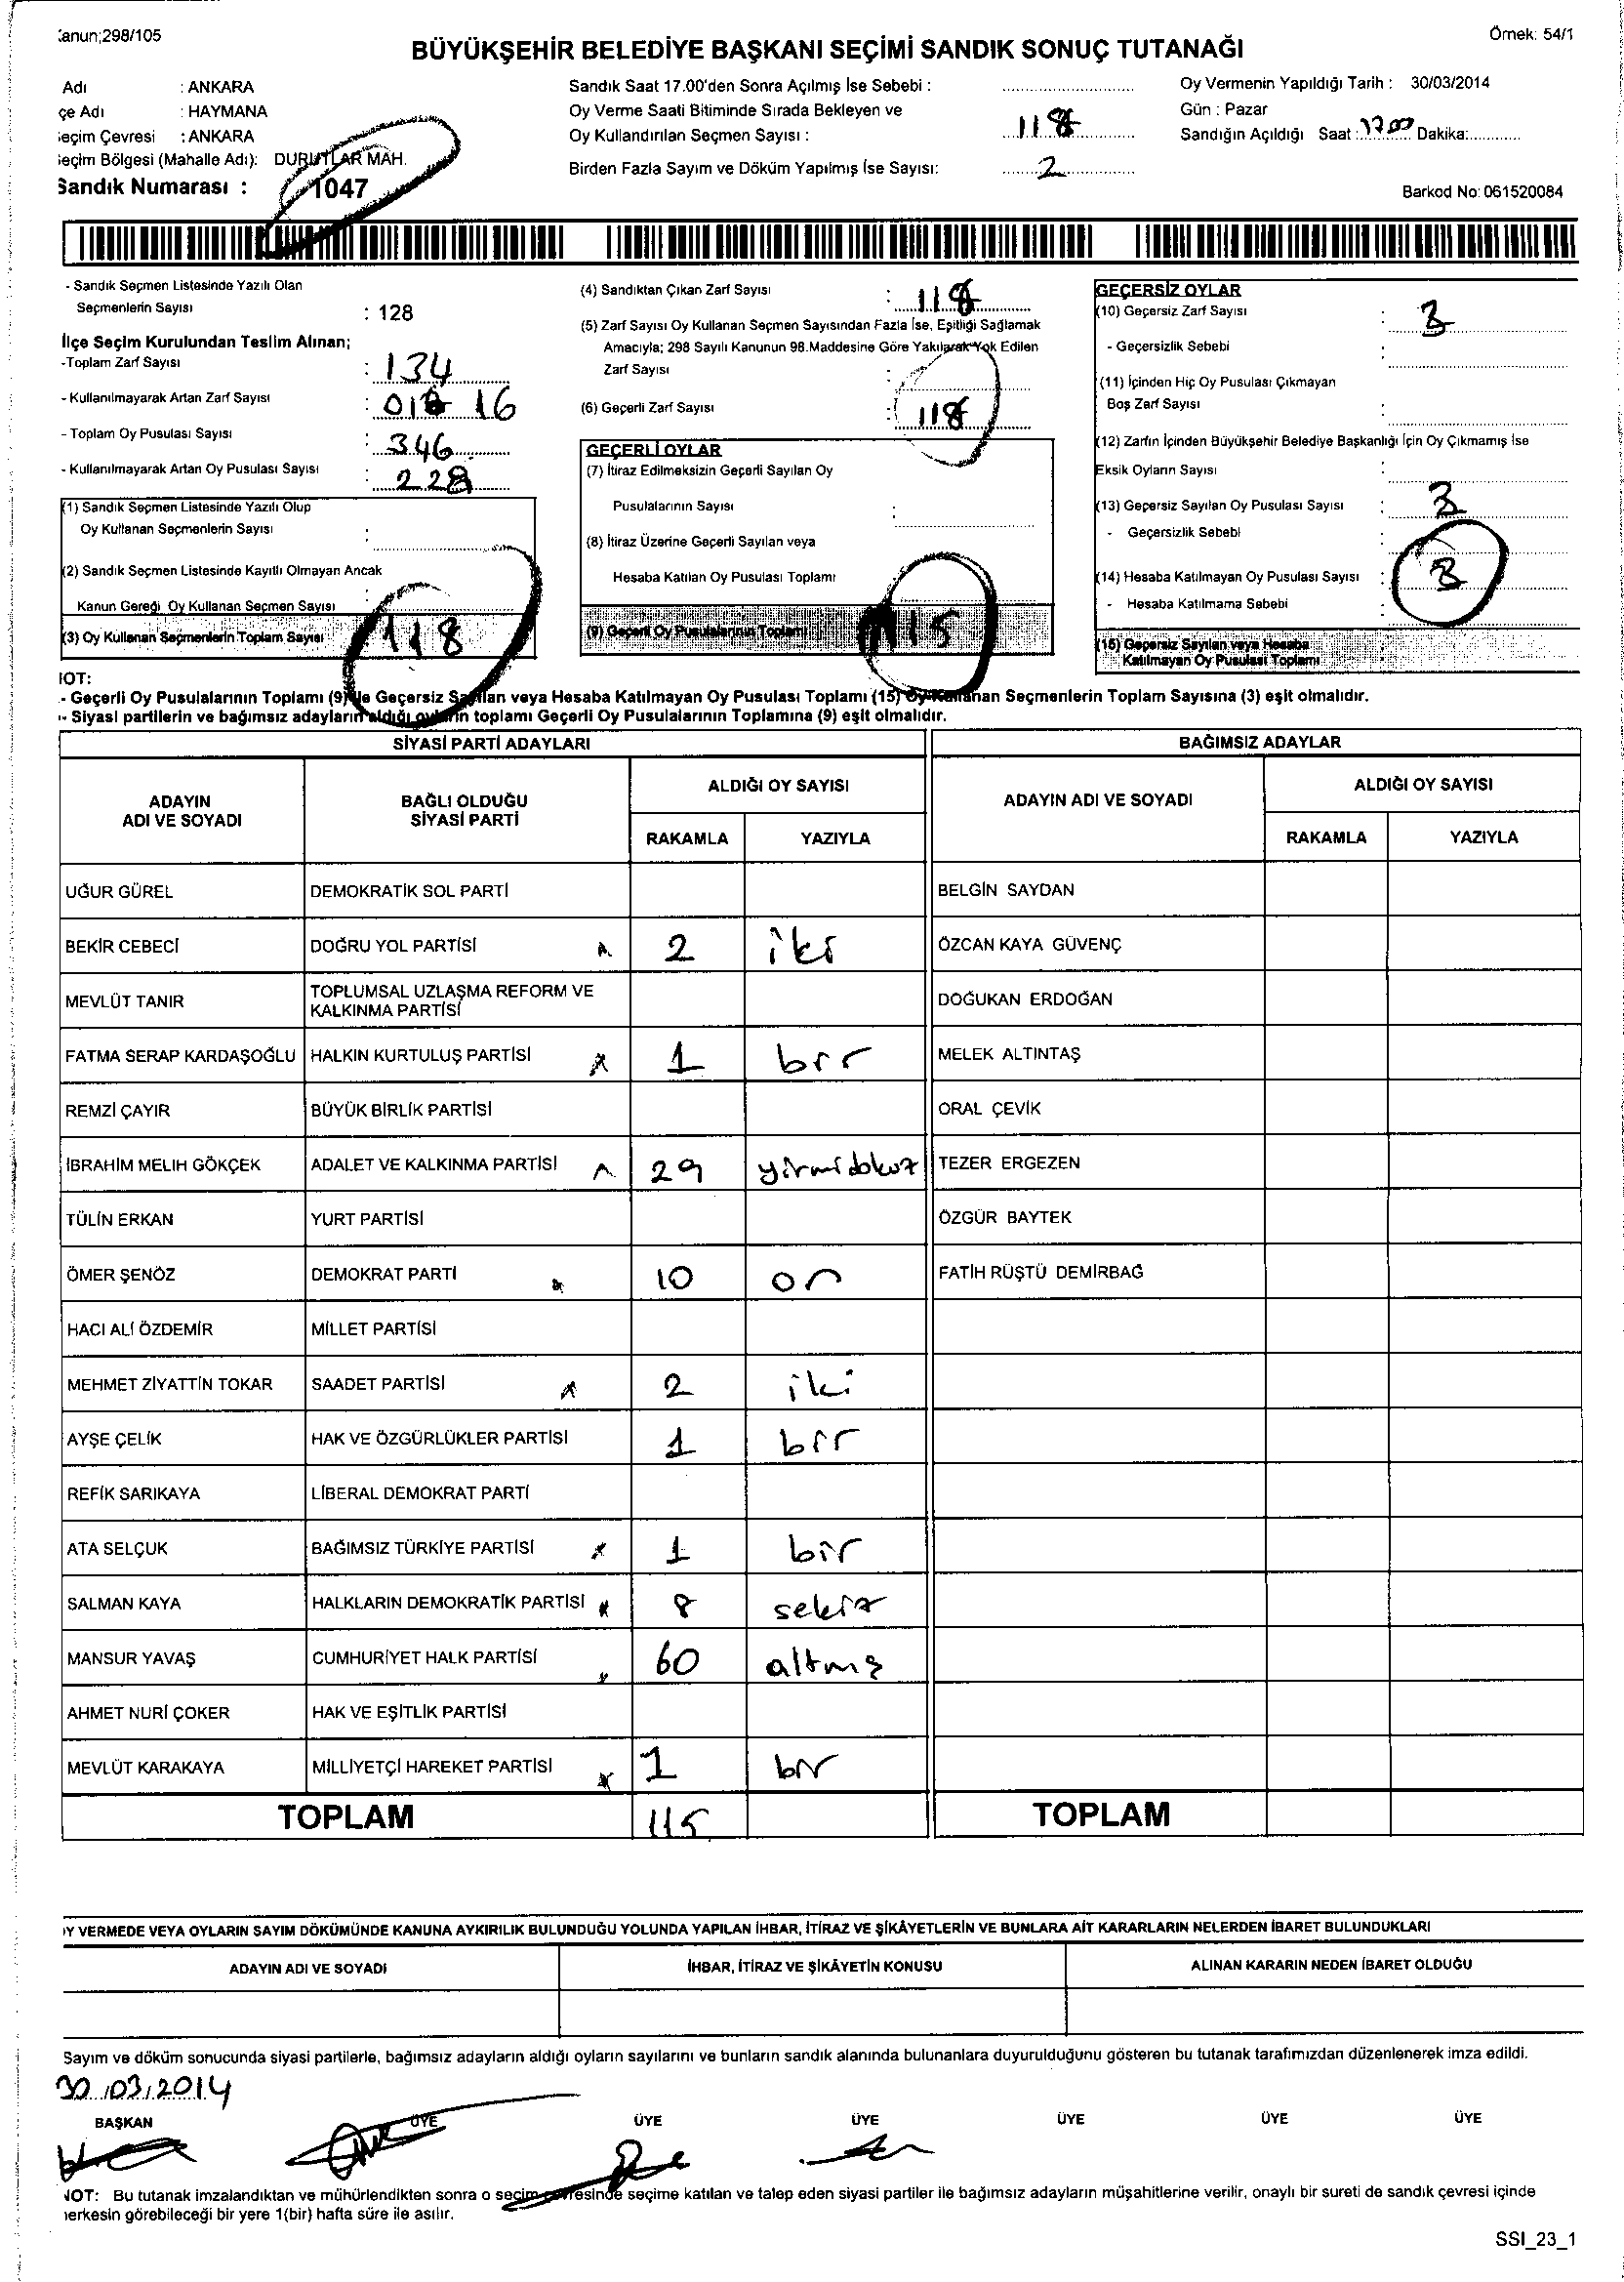 Kanun;298/105
Örnek: 54/1
BÜYÜKŞEHİR BELEDİYE BAŞKANI SEÇİMİ SANDIK SONUÇ TUTANAĞI
Adı : ANKARA
çe Adı : HAYMANA
eçim Çevresi : ANKARA
eçim Bölgesi (Mahalle Adı): DURUTLAR MAH.
Sandık Numarası : 1047
Sandık Saat 17.00'den Sonra Açılmış İse Sebebi :
Oy Verme Saati Bitiminde Sırada Bekleyen ve
Oy Kullandırılan Seçmen Sayısı : 118
Birden Fazla Sayım ve Döküm Yapılmış İse Sayısı: 2
Oy Vermenin Yapıldığı Tarih : 30/03/2014
Gün : Pazar
Sandığın Açıldığı Saat : 1700 Dakika:
Barkod No: 061520084
- Sandık Seçmen Listesinde Yazılı Olan
Seçmenlerin Sayısı : 128
İlçe Seçim Kurulundan Teslim Alınan;
-Toplam Zarf Sayısı : 134
- Kullanılmayarak Artan Zarf Sayısı : 16
- Toplam Oy Pusulası Sayısı : 346
- Kullanılmayarak Artan Oy Pusulası Sayısı : 228
(1) Sandık Seçmen Listesinde Yazılı Olup
Oy Kullanan Seçmenlerin Sayısı :
(2) Sandık Seçmen Listesinde Kayıtlı Olmayan Ancak
Kanun Gereği Oy Kullanan Seçmen Sayısı :
(3) Oy Kullanan Seçmenlerin Toplam Sayısı 118
(4) Sandıktan Çıkan Zarf Sayısı : 118
(5) Zarf Sayısı Oy Kullanan Seçmen Sayısından Fazla İse, Eşitliği Sağlamak
Amacıyla; 298 Sayılı Kanunun 98.Maddesine Göre Yakılarak Yok Edilen
Zarf Sayısı :
(6) Geçerli Zarf Sayısı : 118
GEÇERLİ OYLAR
(7) İtiraz Edilmeksizin Geçerli Sayılan Oy
Pusulalarının Sayısı :
(8) İtiraz Üzerine Geçerli Sayılan veya
Hesaba Katılan Oy Pusulası Toplamı
(9) Geçerli Oy Pusulalarının Toplamı 115
GEÇERSİZ OYLAR
(10) Geçersiz Zarf Sayısı : 3
- Geçersizlik Sebebi :
(11) İçinden Hiç Oy Pusulası Çıkmayan
Boş Zarf Sayısı :
(12) Zarfın İçinden Büyükşehir Belediye Başkanlığı İçin Oy Çıkmamış İse
Eksik Oyların Sayısı :
(13) Geçersiz Sayılan Oy Pusulası Sayısı : 3
- Geçersizlik Sebebi :
(14) Hesaba Katılmayan Oy Pusulası Sayısı : 3
- Hesaba Katılmama Sebebi :
(15) Geçersiz Sayılan veya Hesaba
Katılmayan Oy Pusulası Toplamı
NOT:
- Geçerli Oy Pusulalarının Toplamı (9) ile Geçersiz Sayılan veya Hesaba Katılmayan Oy Pusulası Toplamı (15) Oy Kullanan Seçmenlerin Toplam Sayısına (3) eşit olmalıdır.
- Siyasi partilerin ve bağımsız adayların aldığı oyların toplamı Geçerli Oy Pusulalarının Toplamına (9) eşit olmalıdır.
SİYASİ PARTİ ADAYLARI
BAĞIMSIZ ADAYLAR
ADAYIN ADI VE SOYADI
BAĞLI OLDUĞU SİYASİ PARTİ
ALDIĞI OY SAYISI
RAKAMLA YAZIYLA
ADAYIN ADI VE SOYADI
ALDIĞI OY SAYISI
RAKAMLA YAZIYLA
UĞUR GÜREL DEMOKRATİK SOL PARTİ BELGİN SAYDAN
BEKİR CEBECİ DOĞRU YOL PARTİSİ 2 iki ÖZCAN KAYA GÜVENÇ
MEVLÜT TANIR TOPLUMSAL UZLAŞMA REFORM VE KALKINMA PARTİSİ DOĞUKAN ERDOĞAN
FATMA SERAP KARDAŞOĞLU HALKIN KURTULUŞ PARTİSİ 1 bir MELEK ALTINTAŞ
REMZİ ÇAYIR BÜYÜK BİRLİK PARTİSİ ORAL ÇEVİK
İBRAHİM MELİH GÖKÇEK ADALET VE KALKINMA PARTİSİ 29 yirmidokuz TEZER ERGEZEN
TÜLİN ERKAN YURT PARTİSİ ÖZGÜR BAYTEK
ÖMER ŞENÖZ DEMOKRAT PARTİ 10 on FATİH RÜŞTÜ DEMİRBAĞ
HACI ALİ ÖZDEMİR MİLLET PARTİSİ
MEHMET ZİYATTİN TOKAR SAADET PARTİSİ 2 iki
AYŞE ÇELİK HAK VE ÖZGÜRLÜKLER PARTİSİ 1 bir
REFİK SARIKAYA LİBERAL DEMOKRAT PARTİ
ATA SELÇUK BAĞIMSIZ TÜRKİYE PARTİSİ 1 bir
SALMAN KAYA HALKLARIN DEMOKRATİK PARTİSİ 8 sekiz
MANSUR YAVAŞ CUMHURİYET HALK PARTİSİ 60 altmış
AHMET NURİ ÇOKER HAK VE EŞİTLİK PARTİSİ
MEVLÜT KARAKAYA MİLLİYETÇİ HAREKET PARTİSİ 1 bir
TOPLAM 115 TOPLAM
OY VERMEDE VEYA OYLARIN SAYIM DÖKÜMÜNDE KANUNA AYKIRILIK BULUNDUĞU YOLUNDA YAPILAN İHBAR, İTİRAZ VE ŞİKÂYETLERİN VE BUNLARA AİT KARARLARIN NELERDEN İBARET BULUNDUKLARI
ADAYIN ADI VE SOYADI İHBAR, İTİRAZ VE ŞİKÂYETİN KONUSU ALINAN KARARIN NEDEN İBARET OLDUĞU
Sayım ve döküm sonucunda siyasi partilerle, bağımsız adayların aldığı oyların sayılarını ve bunların sandık alanında bulunanlara duyurulduğunu gösteren bu tutanak tarafımızdan düzenlenerek imza edildi.
30/03/2014
BAŞKAN ÜYE ÜYE ÜYE ÜYE ÜYE ÜYE
NOT: Bu tutanak imzalandıktan ve mühürlendikten sonra o seçim çevresinde seçime katılan ve talep eden siyasi partiler ile bağımsız adayların müşahitlerine verilir, onaylı bir sureti de sandık çevresi içinde
herkesin görebileceği bir yere 1(bir) hafta süre ile asılır.
SSI_23_1